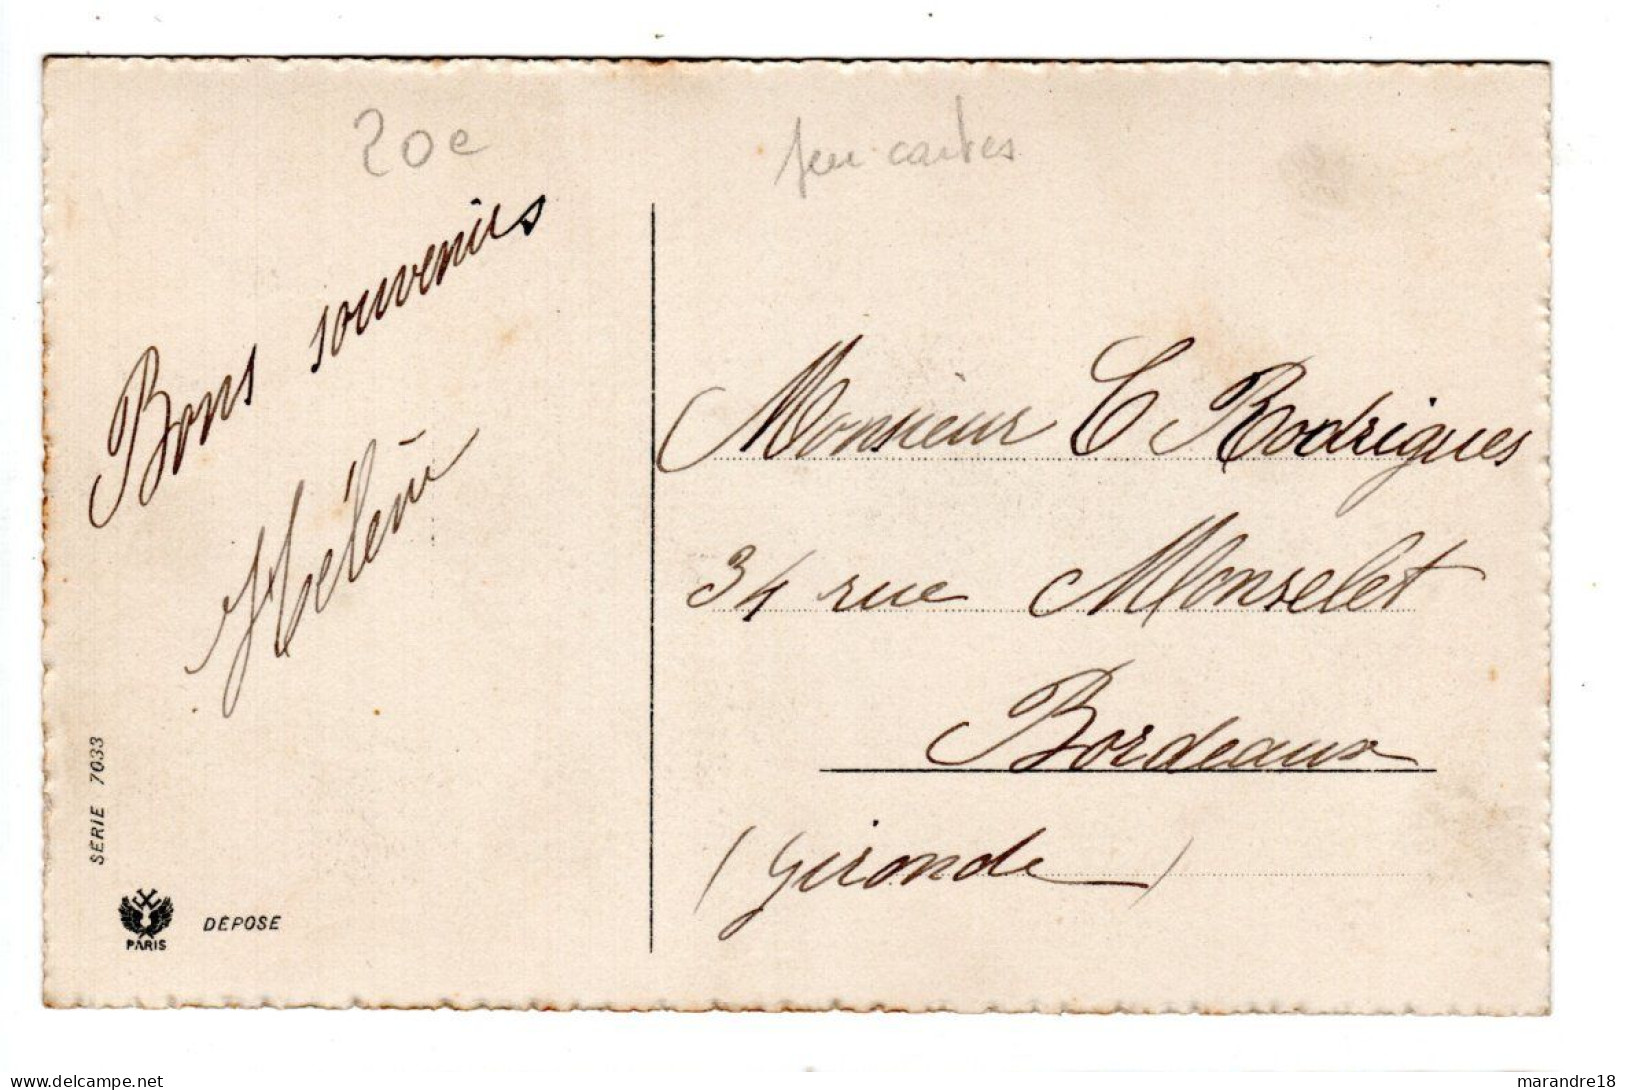 20e
jeu cartes
Bons souvenirs
Hélène
Monsieur C Rodrigues
34 rue Monselet
Bordeaux
(Gironde)
SERIE 7033
PARIS
DÉPOSÉ
www.delcampe.net
marandre18